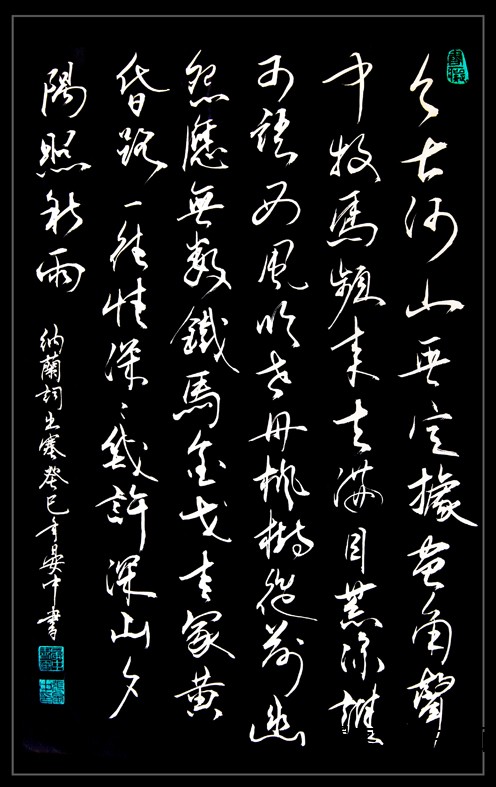 今古河山無定據畫角聲
中牧馬頻來去滿目荒涼誰
可語西風吹老丹楓樹從前幽
怨應無數鐵馬金戈青冢黃
昏路一往情深〻幾許深山夕
陽照秋雨
納蘭詞出塞癸巳年晏中書